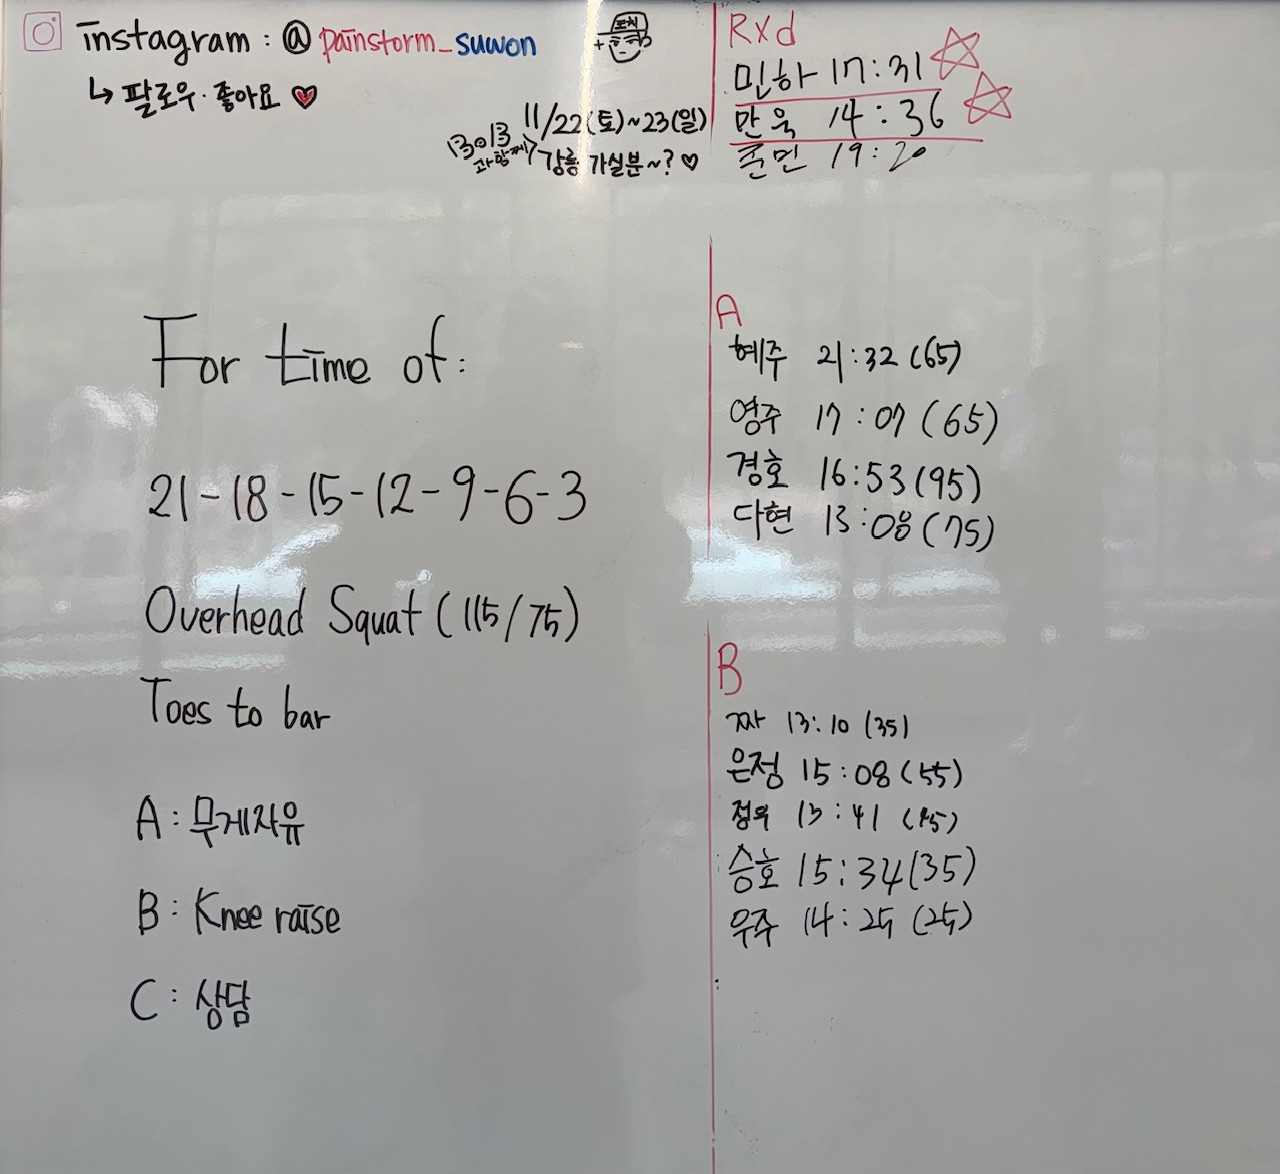 instagram : @painstorm_suwon
↳ 팔로우·좋아요 ♥
코치
11/22(토)~23(일)
과 함께
강릉 가실분~? ♡
For time of:
21-18-15-12-9-6-3
Overhead Squat (115/75)
Toes to bar
A : 무게자유
B : Knee raise
C : 상담
Rxd
민하 17:31 ☆
만욱 14:36 ☆
준민 19:20
A
혜주 21:32 (65)
영주 17:07 (65)
경호 16:53 (95)
다현 13:08 (75)
B
짜 13:10 (35)
은정 15:08 (55)
13:41
승호 15:34 (35)
우주 14:25 (25)